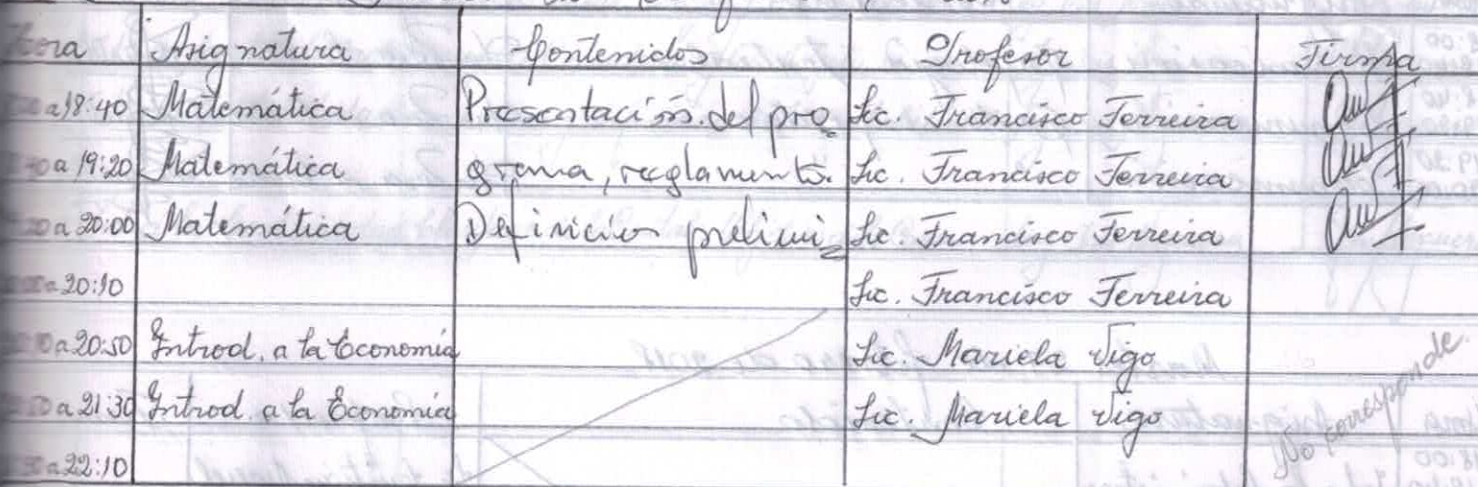 Hora Asignatura Contenidos Profesor Firma
a 18:40 Matemática Presentación del pro Lic. Francisco Ferreira
a 19:20 Matemática grama, reglamento. Lic. Francisco Ferreira
a 20:00 Matemática Definición prelimi Lic. Francisco Ferreira
a 20:10 Lic. Francisco Ferreira
a 20:50 Introd. a la Economía Lic. Mariela Vigo
a 21:30 Introd. a la Economía Lic. Mariela Vigo
a 22:10
No corresponde.